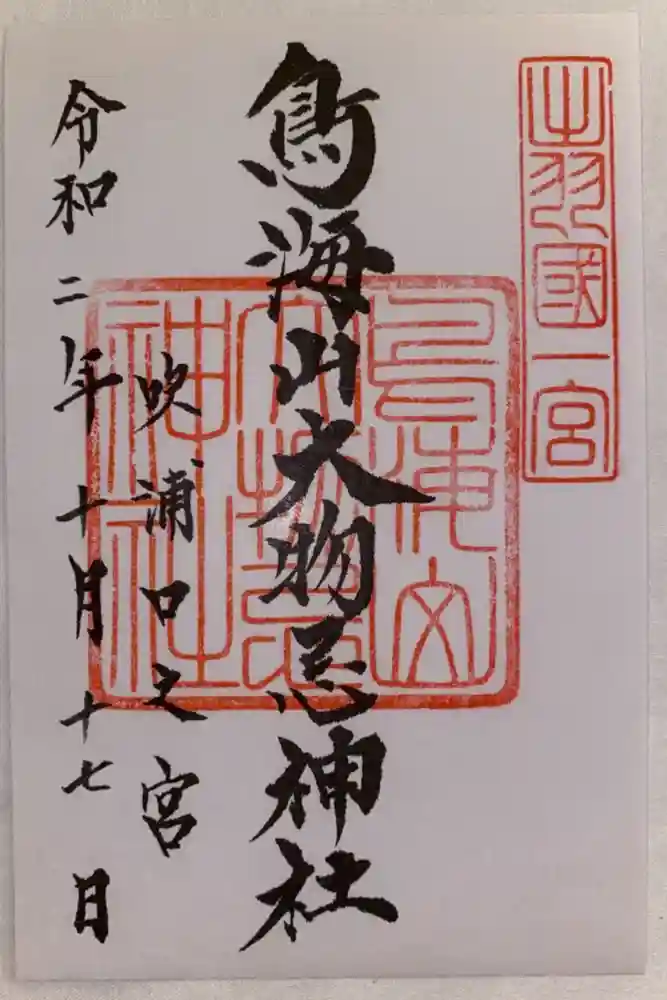 出羽國一宮
鳥海山大物忌神社
鳥海山
大物忌
神社
吹浦口之宮
令和二年十月十七日